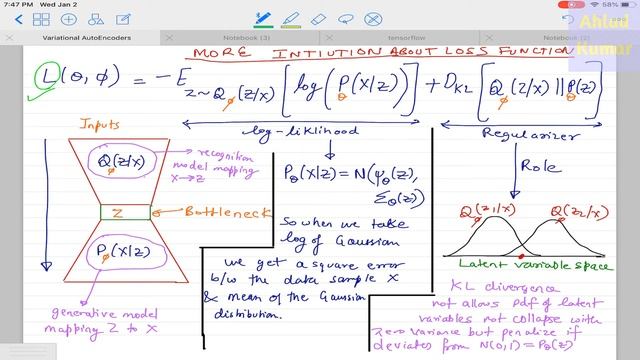 7:47 PM Wed Jan 2
58%
Ahlad
Kumar
Variational AutoEncoders
Notebook (3)
tensorflow
Notebook (2)
MORE INTIUTION ABOUT LOSS FUNCTION
L(θ, φ) = -E z~Qφ(z/x) [log(Pθ(x/z))] + DKL [Qφ(z/x) || Pθ(z)]
Inputs
Qφ(z/x)
recognition
model mapping
x→z
Z
Bottleneck
Pφ(x/z)
generative model
mapping Z to X
log-liklihood
Pθ(x/z) = N(ψθ(z),
Σθ(z))
So when we take
log of Gaussian
we get a square error
b/w the data sample X
& mean of the Gaussian
distribution.
Regularizer
Role
Qφ(z1/x)
Qφ(z2/x)
Latent variable space
KL divergence
not allows pdf of latent
variables not collapse with
zero variance but penalize if
deviates from N(0,1) = Pθ(z)